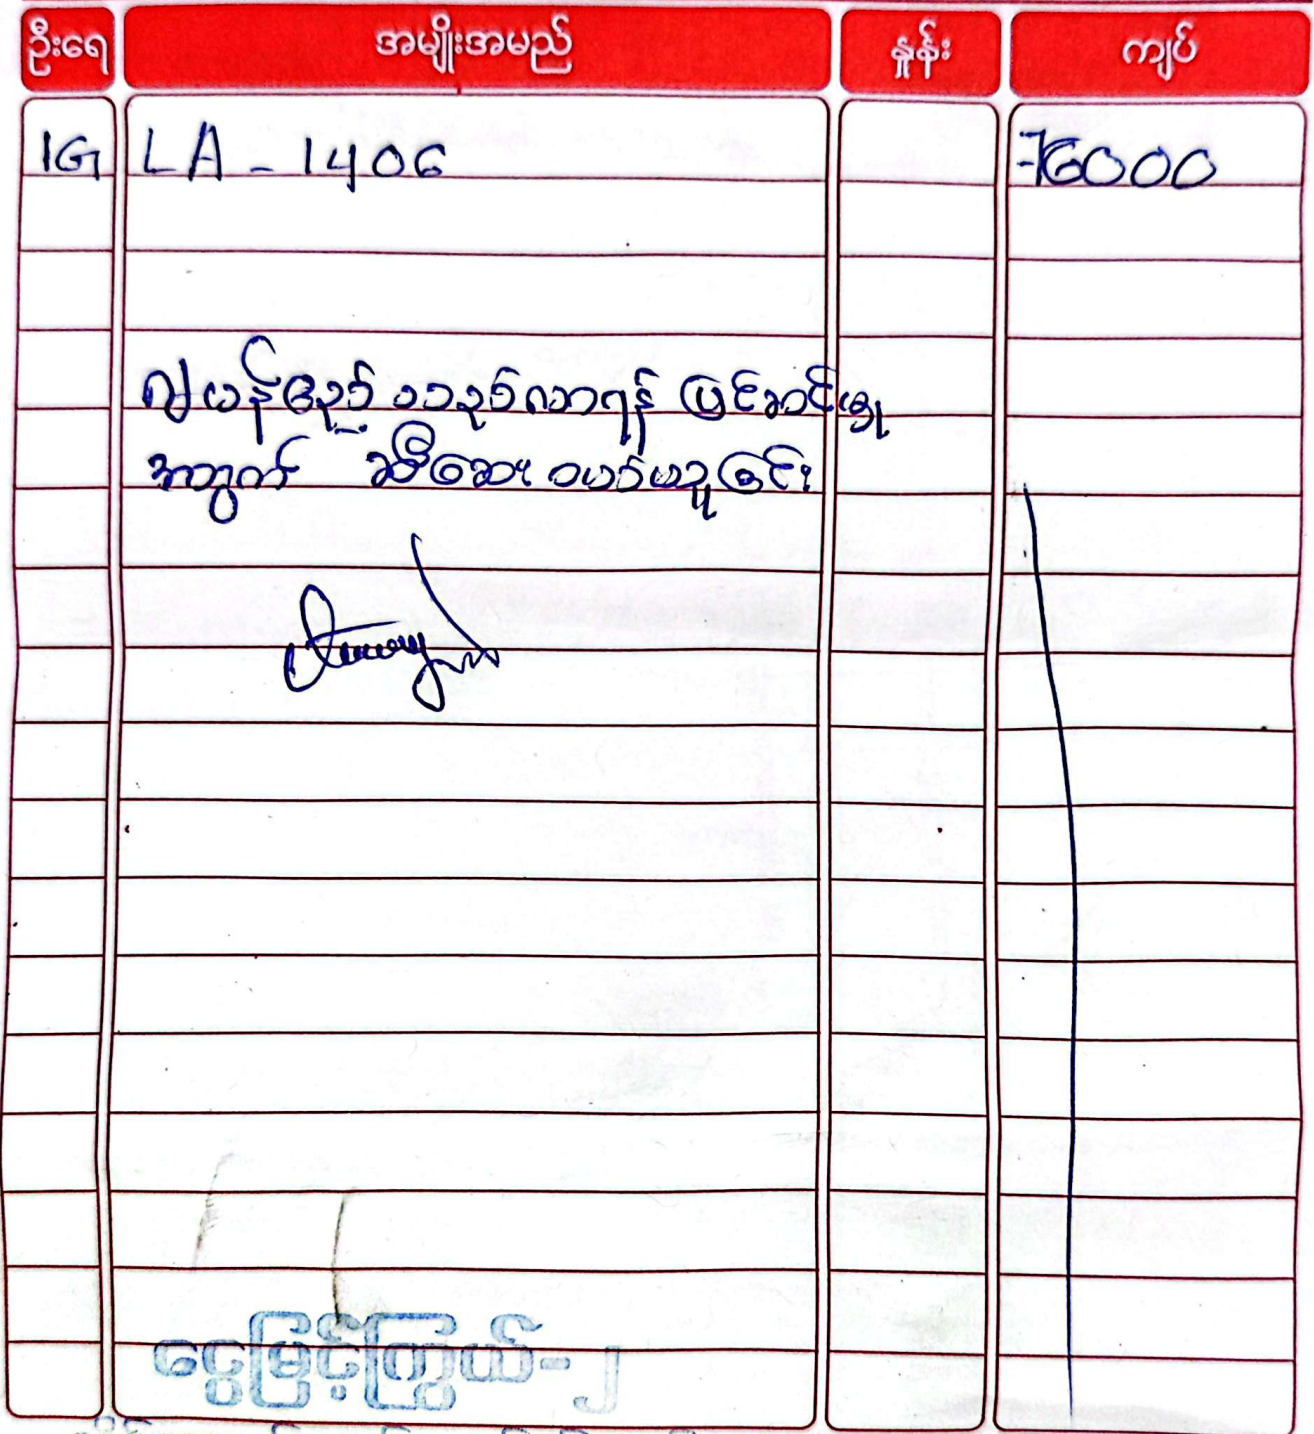 ဦးရေ အမျိုးအမည် နှုန်း ကျပ်
1G LA - 1406 76000
ဂျပန်ဧည့် လာရန် ပြင်ဆင်မှု
အတွက် ဆီဆေး ဝယ်ယူခြင်း
ငွေမြင့်ကြွယ်-၂